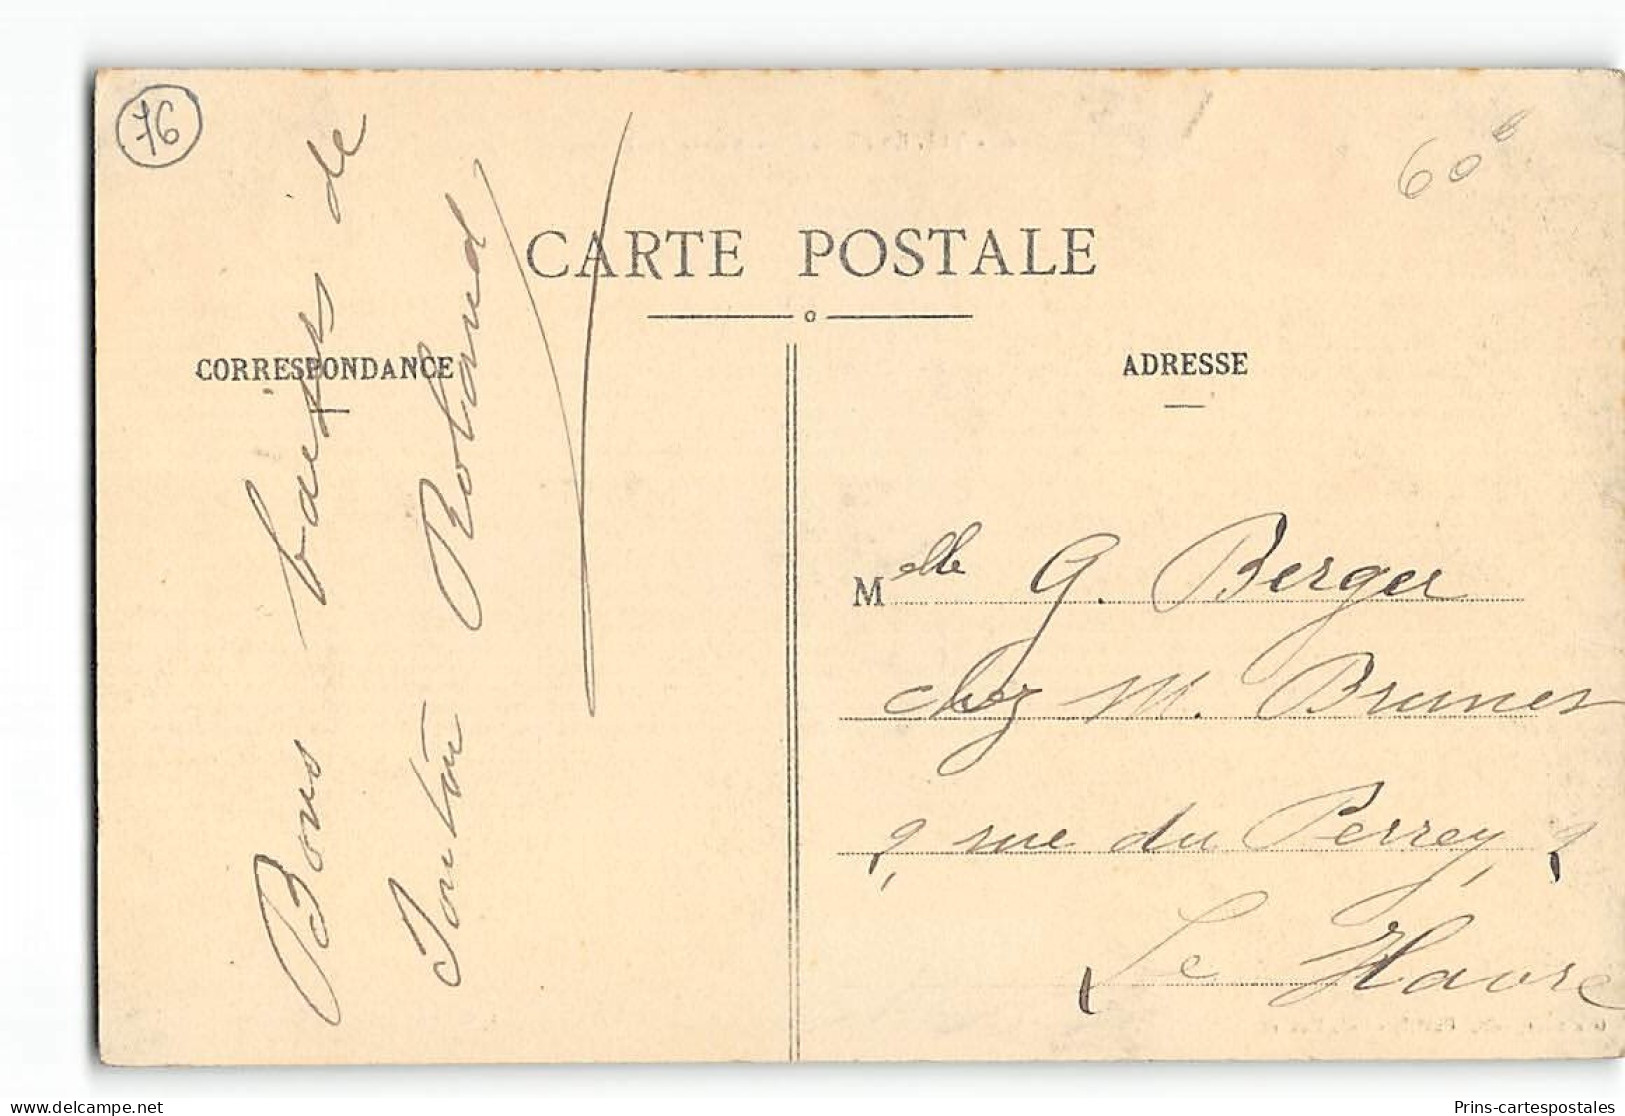 76
60 c
CARTE POSTALE
CORRESPONDANCE
ADRESSE
Bons baisers de
Tonton Roland
Melle G. Berger
chez M. Brunes
9 rue du Perrey, 9
Le Havre
Prins-cartespostales
www.delcampe.net